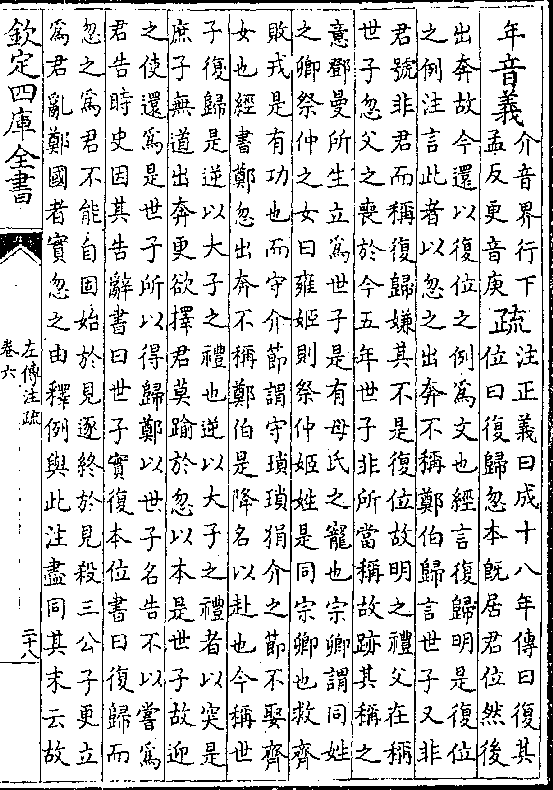 年音義介音界行下孟反更音庚疏注正義曰成十八年傳曰復其位曰復歸忽本既居君位然後
出奔故今還以復位之例爲文也經言復歸明是復位
之例注言此者以忽之出奔不稱鄭伯歸言世子又非
君號非君而稱復歸嫌其不是復位故明之禮父在稱
世子忽父之喪於今五年世子非所當稱故跡其稱之
意鄧曼所生立爲世子是有母氏之寵也宗卿謂同姓
之卿祭仲之女曰雍姬則祭仲姬姓是同宗卿也救齊
敗戎是有功也而守介節謂守瑣瑣狷介之節不娶齊
女也經書鄭忽出奔不稱鄭伯是降名以赴也今稱世
子復歸是逆以大子之禮也逆以大子之禮者以突是
庶子無道出奔更欲擇君莫踰於忽以本是世子故迎
之使還爲是世子所以得歸鄭以世子名告不以嘗爲
君告時史因其告辭書曰世子實復本位書曰復歸而
忽之爲君不能自固始於見逐終於見殺三公子更立
爲君亂鄭國者實忽之由釋例與此注盡同其末云故
欽定四庫全書
左傳注疏
卷六
二十八